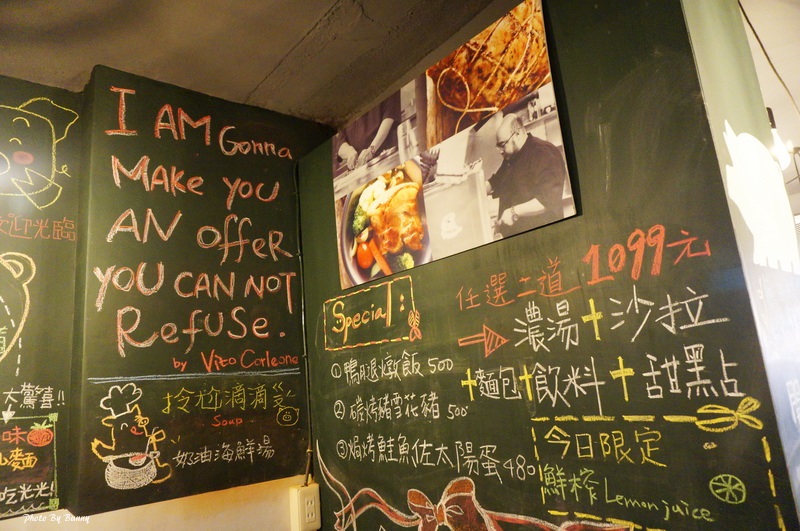 歡迎光臨
大驚喜!!
味
麵
吃光光!
I AM Gonna
Make you
AN offer
YOU CAN NOT
Refuse.
by Vito Corleone
拎尬滴滴
Soup
奶油海鮮湯
Special:
①鴨腿燉飯 500
②碳烤豬雪花豬 500
③焗烤鮭魚佐太陽蛋 480
任選二道 1099元
濃湯+沙拉
+麵包+飲料+甜點
今日限定
鮮榨 Lemon juice
Photo By Bunny